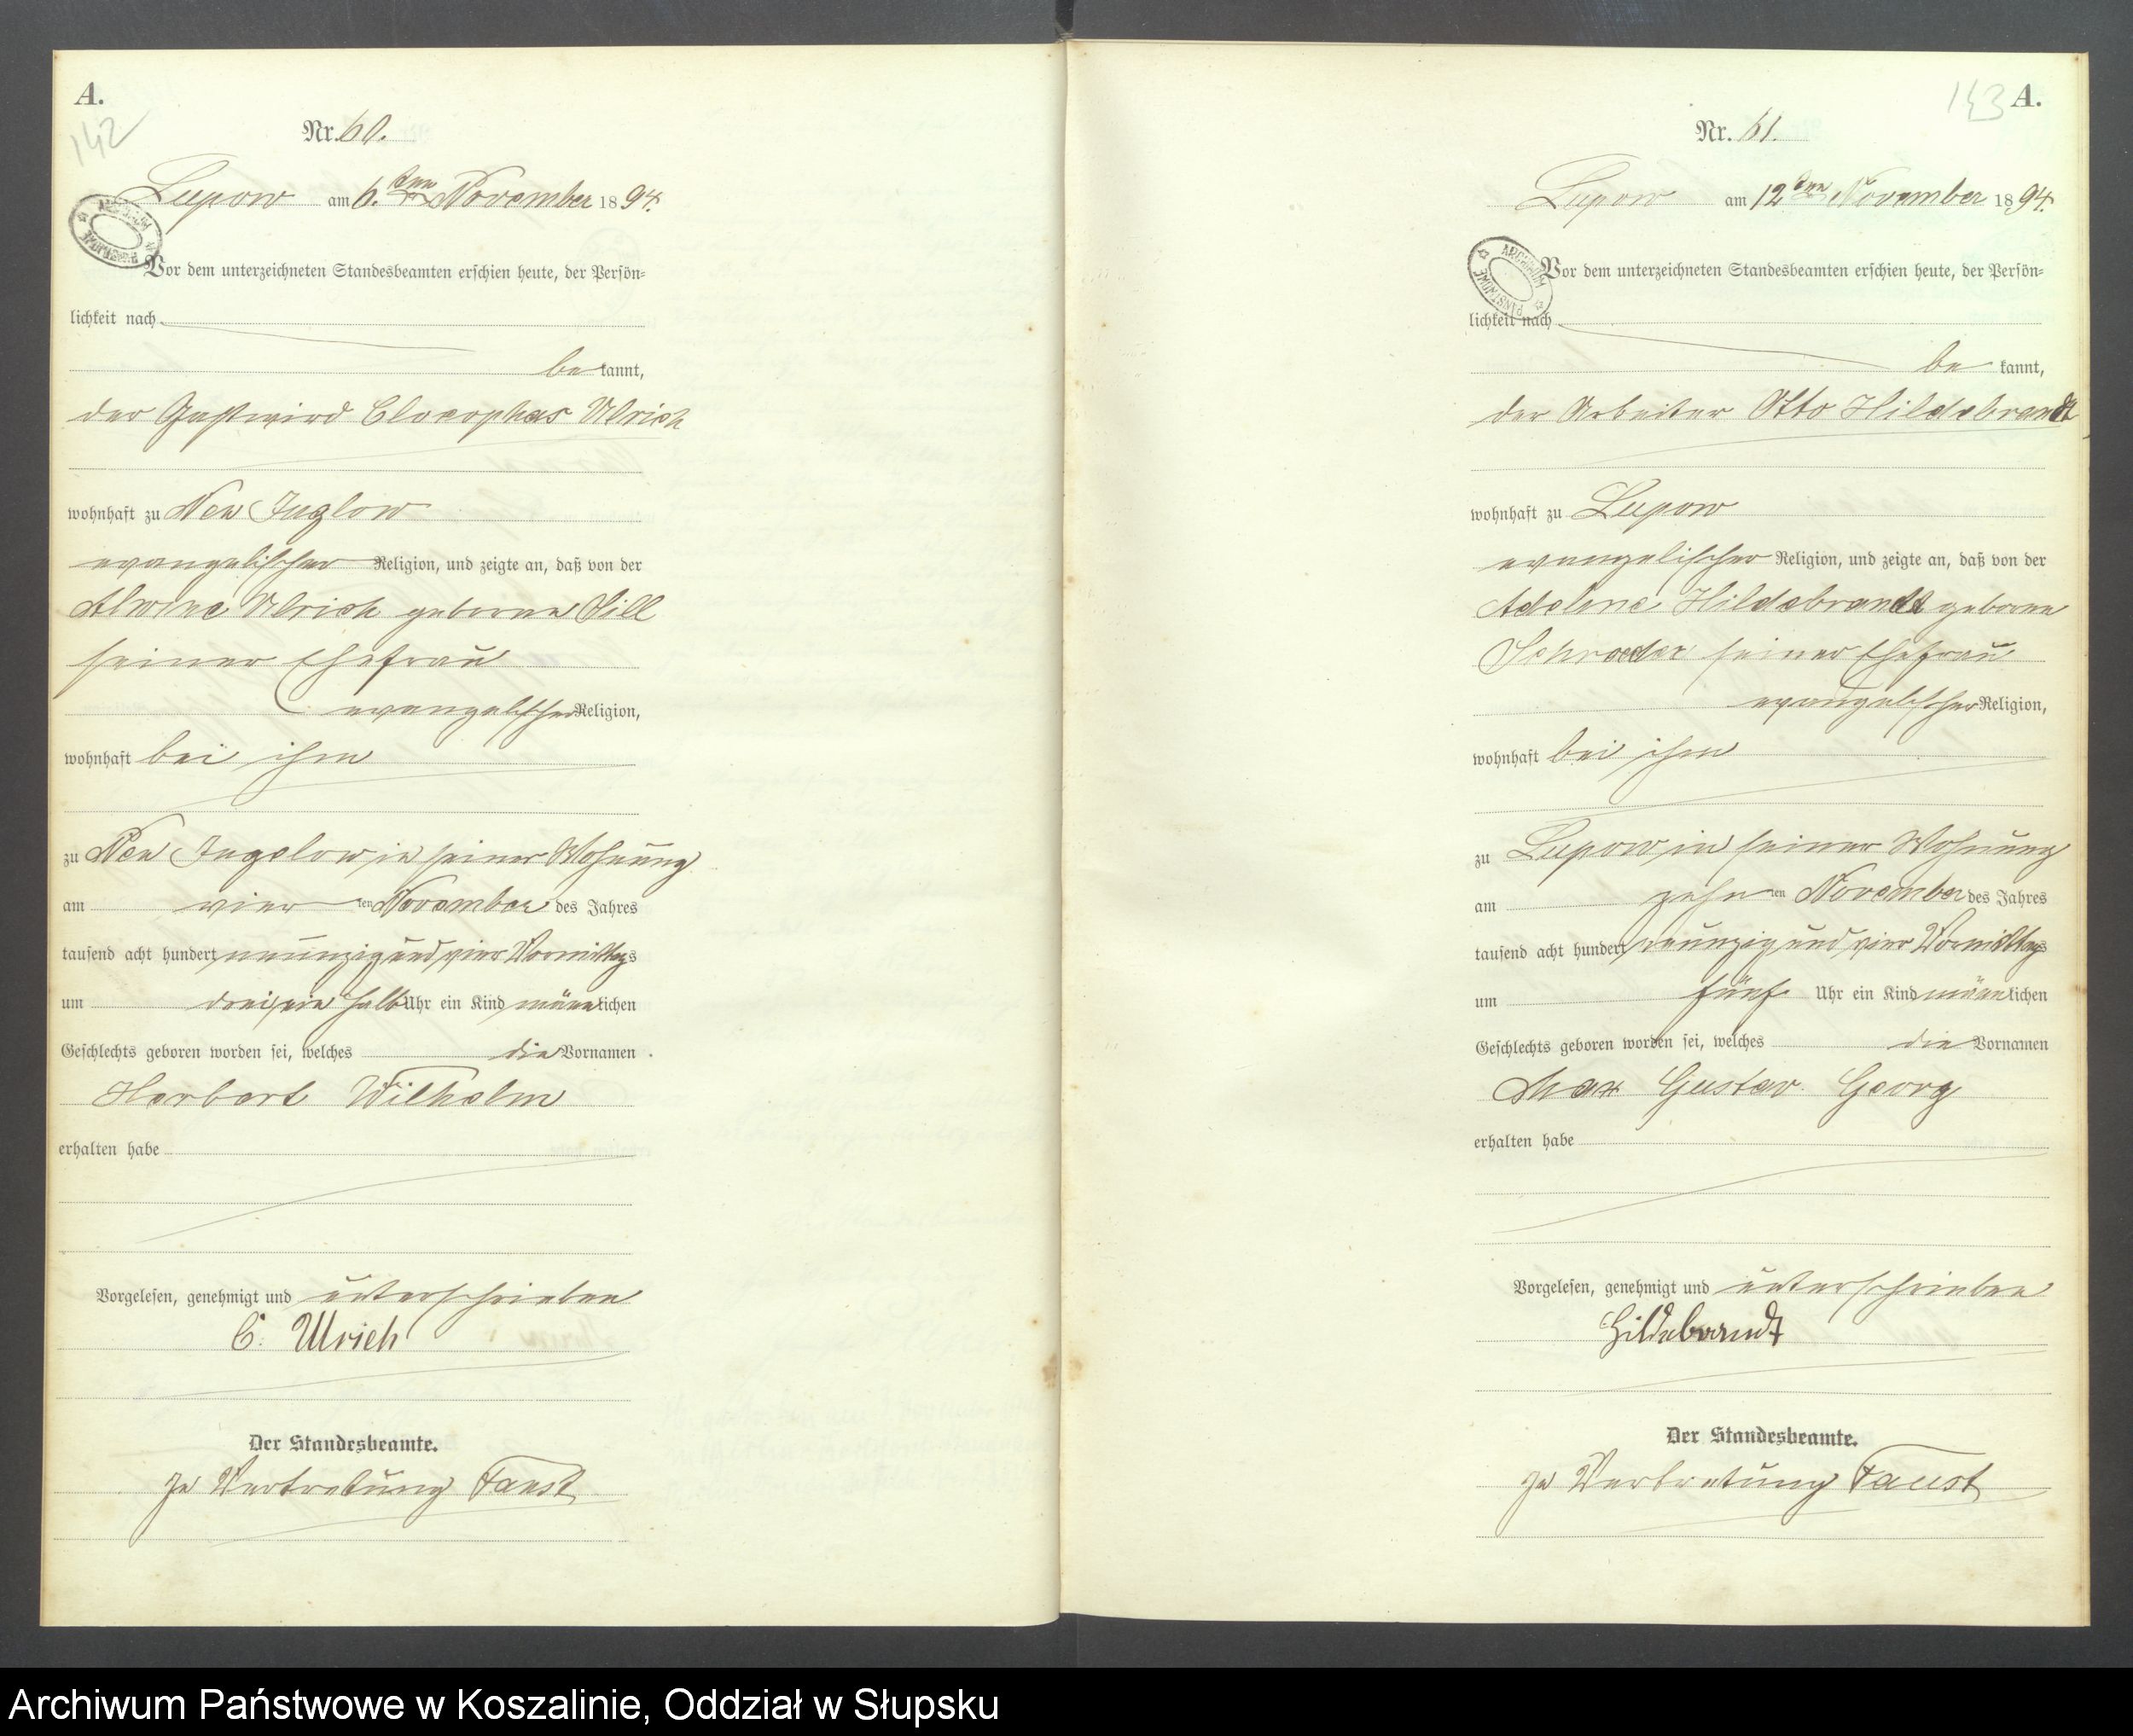 A.
142
Nr. 60.
Lupow am 6. ten November 1894.
ARCHIWUM PAŃSTWOWE
Vor dem unterzeichneten Standesbeamten erschien heute, der Persön-
lichkeit nach
be kannt,
der Gastwird Cleophas Ulrich
wohnhaft zu Neu Juglow
evangelischer Religion, und zeigte an, daß von der
Alwine Ulrich geborne Sill
seiner Ehefrau
evangelischer Religion,
wohnhaft bei ihm
zu Neu Jugelow in seiner Wohnung
am vier ten November des Jahres
tausend acht hundert neunzig und vier Vormittags
um drei ein halb Uhr ein Kind männlichen
Geschlechts geboren worden sei, welches die Vornamen
Herbert Wilhelm
erhalten habe
Vorgelesen, genehmigt und unterschrieben
C. Ulrich
Der Standesbeamte.
In Vertretung Faust
143
A.
Nr. 61.
Lupow am 12 ten November 1894.
ARCHIWUM PAŃSTWOWE
Vor dem unterzeichneten Standesbeamten erschien heute, der Persön-
lichkeit nach
be kannt,
der Arbeiter Otto Hildebrandt
wohnhaft zu Lupow
evangelischer Religion, und zeigte an, daß von der
Adeline Hildebrandt geborne
Schroeder seiner Ehefrau
evangelischer Religion,
wohnhaft bei ihm
zu Lupow in seiner Wohnung
am zehn ten November des Jahres
tausend acht hundert neunzig und vier Vormittags
um fünf Uhr ein Kind männlichen
Geschlechts geboren worden sei, welches die Vornamen
Max Gustav Georg
erhalten habe
Vorgelesen, genehmigt und unterschrieben
Hildebrandt
Der Standesbeamte.
In Vertretung Faust
Archiwum Państwowe w Koszalinie, Oddział w Słupsku